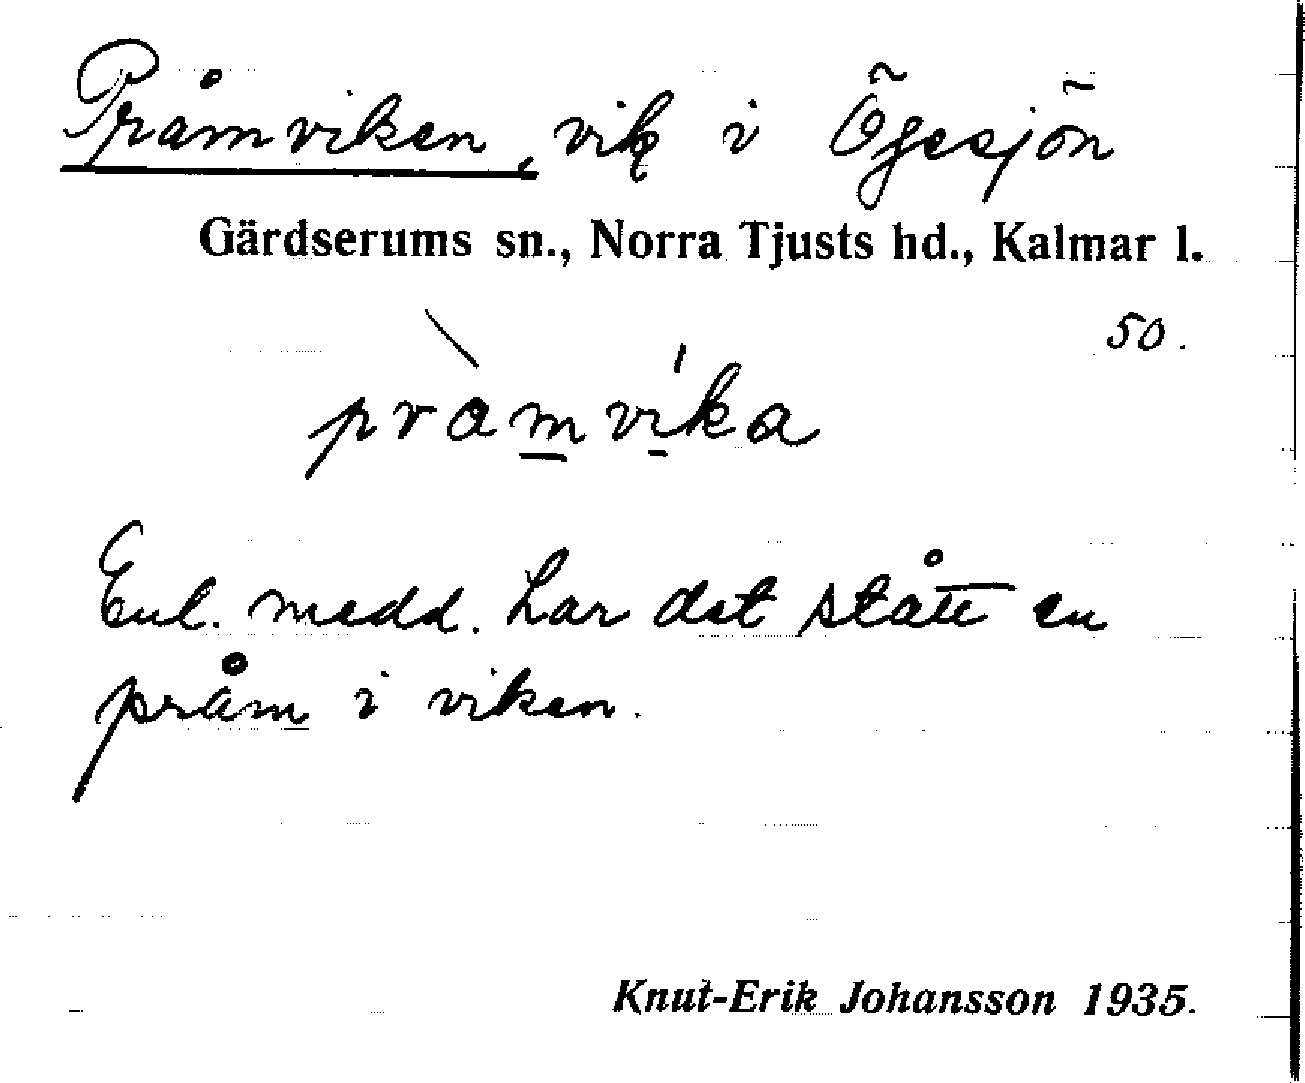 Pråmviken, vik i Ögesjön
Gärdserums sn., Norra Tjusts hd., Kalmar l.
50.
pràmvíka
Enl. medd. har det stått en
pråm i viken.
Knut-Erik Johansson 1935.